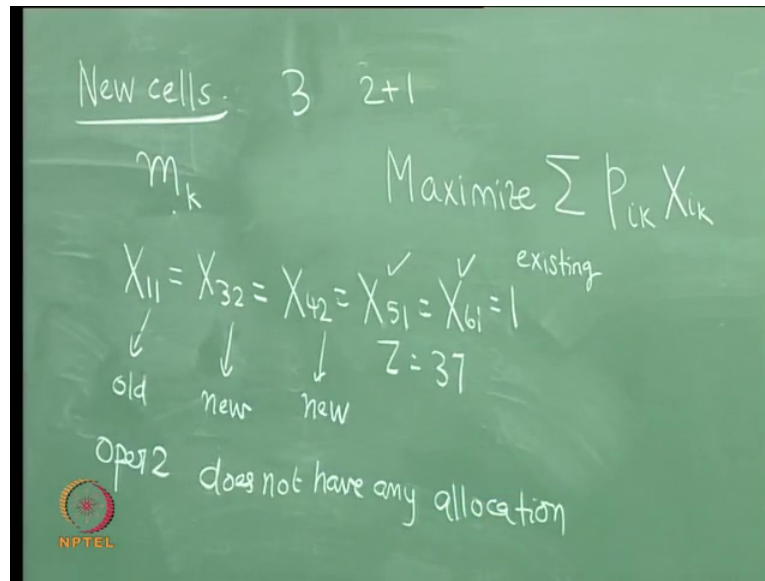 New cells. 3 2+1
m_k Maximize Σ p_ik X_ik
X_11 = X_32 = X_42 = X_51 = X_61 = 1 existing
✓ ✓
Z = 37
old new new
Oper 2 does not have any allocation
NPTEL